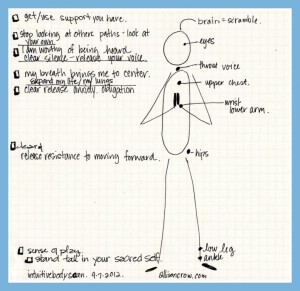 get/use support you have.
brain = scramble.
stop looking at others paths - look at
your own
eyes
I am worthy of being heard
clear silence - release your voice.
throat voice
my breath brings me to center.
expand my life/my wings
upper chest.
clear release anxiety obligation
wrist
lower arm.
release resistance to moving forward.
hips
sense of play
stand tall in your sacred self.
low leg
ankle
intuitive body scan. 9.7.2012.
alliemcrow.com